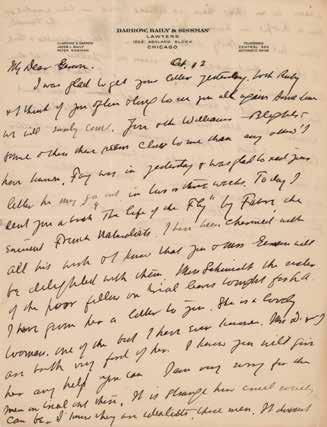 DARROW, BAILY & SISSMAN
LAWYERS
1202 ASHLAND BLOCK
CHICAGO
CLARENCE S. DARROW
JACOB L. BAILY
PETER SISSMAN
TELEPHONES
CENTRAL 925
AUTOMATIC
Oct. 12
My Dear
I was glad to get your letter yesterday. Both Ruby
& I think of you often & long to see you all again some time
we will surely come. You & the Williams
some others there seem closer to me than any others I
have known. Fay was in yesterday & was glad to read your
letter he may go out in two or three weeks. Today I
sent you a book "The Life of the Fly" by Fabre, the
French Naturalist. I have been charmed with
all his work & know that you & Miss will
be delighted with them. Mrs Schmidt the sister
of the poor fellow on trial leaves tonight
I have given her a letter to you. She is a lovely
woman. One of the best I have ever known. Mrs D. & I
are both very fond of her. I know you will give
her any help you can I am very sorry for the
men on trial out there. It is strange how cruel society
can be. I know they are idealists, these men. It doesn't